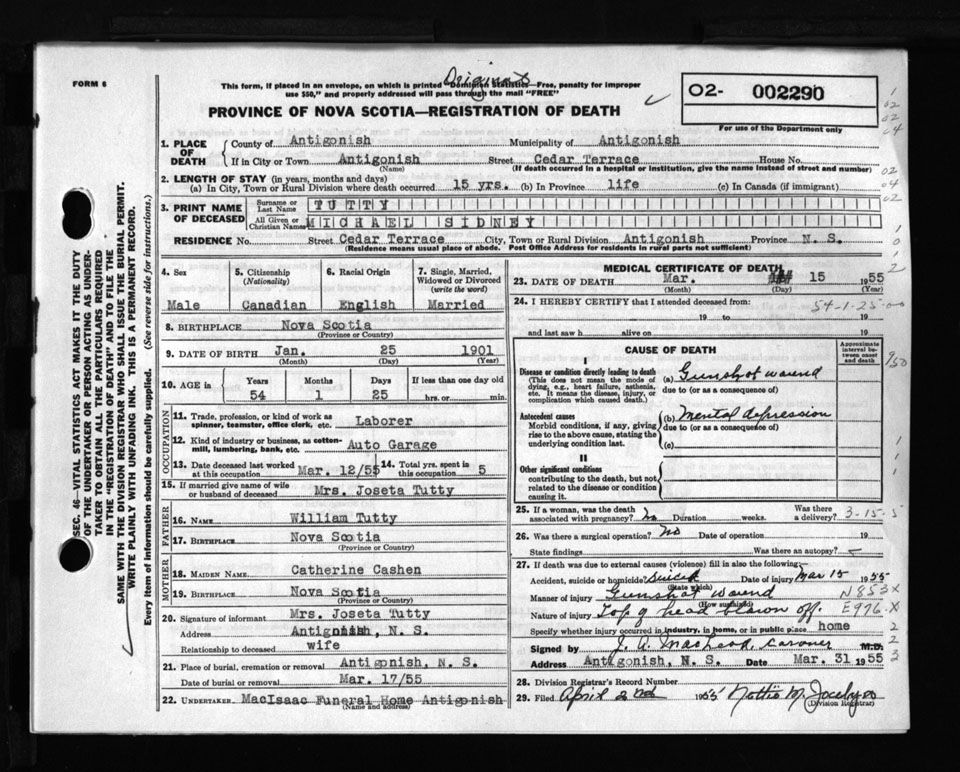 FORM 6
Original
This form, if placed in an envelope, on which is printed "Dominion Statistics—Free, penalty for improper
use $50," and properly addressed will pass through the mail "FREE"
O2- 002290
PROVINCE OF NOVA SCOTIA—REGISTRATION OF DEATH
For use of the Department only
1. PLACE OF DEATH
County of Antigonish Municipality of Antigonish
If in City or Town Antigonish Street Cedar Terrace House No.
(Name) (If death occurred in a hospital or institution, give the name instead of street and number)
2. LENGTH OF STAY (in years, months and days)
(a) In City, Town or Rural Division where death occurred 15 yrs. (b) In Province life (c) In Canada (if immigrant)
3. PRINT NAME OF DECEASED
Surname or Last Name TUTTY
All Given or Christian Names MICHAEL SIDNEY
RESIDENCE No. Street Cedar Terrace City, Town or Rural Division Antigonish Province N. S.
(Residence means usual place of abode. Post Office Address for residents in rural parts not sufficient)
4. Sex
Male
5. Citizenship
(Nationality)
Canadian
6. Racial Origin
English
7. Single, Married,
Widowed or Divorced
(write the word)
Married
8. BIRTHPLACE Nova Scotia
(Province or Country)
9. DATE OF BIRTH Jan. 25 1901
(Month) (Day) (Year)
10. AGE in
Years Months Days If less than one day old
54 1 25 hrs. or min.
OCCUPATION
11. Trade, profession or kind of work as
spinner, teamster, office clerk, etc. Laborer
12. Kind of industry or business, as cotton-
mill, lumbering, bank, etc. Auto Garage
13. Date deceased last worked
at this occupation Mar. 12/55
14. Total yrs. spent in
this occupation 5
15. If married give name of wife
or husband of deceased Mrs. Joseta Tutty
FATHER
16. NAME William Tutty
17. BIRTHPLACE Nova Scotia
(Province or Country)
MOTHER
18. MAIDEN NAME Catherine Cashen
19. BIRTHPLACE Nova Scotia
(Province or Country)
20. Signature of informant Mrs. Joseta Tutty
Address Antigonish, N. S.
Relationship to deceased wife
21. Place of burial, cremation or removal Antigonish, N. S.
Date of burial or removal Mar. 17/55
22. UNDERTAKER MacIsaac Funeral Home Antigonish
(Name and address)
MEDICAL CERTIFICATE OF DEATH
23. DATE OF DEATH Mar. 15 1955
(Month) (Day) (Year)
24. I HEREBY CERTIFY that I attended deceased from:
54-1-25-00
19 to 19
and last saw h alive on 19
CAUSE OF DEATH
Approximate interval between onset and death
I
Disease or condition directly leading to death
(This does not mean the mode of
dying, e.g., heart failure, asthenia,
etc. It means the disease, injury, or
complication which caused death.)
(a) Gunshot wound
due to (or as a consequence of)
Antecedent causes
Morbid conditions, if any, giving
rise to the above cause, stating the
underlying condition last.
(b) Mental depression
due to (or as a consequence of)
(c)
II
Other significant conditions
contributing to the death, but not
related to the disease or condition
causing it.
25. If a woman, was the death
associated with pregnancy? No Duration weeks. Was there
a delivery? 3-15-5
26. Was there a surgical operation? No Date of operation 19
State findings Was there an autopsy?
27. If death due to external causes (violence) fill in also the following:
Accident, suicide or homicide? Suicide Date of injury Mar 15 1955
(State which)
Manner of injury Gunshot wound N853X
(How sustained)
Nature of injury Top of head blown off. E976.X
Specify whether injury occurred in industry, in home, or in public place home
Signed by J. A. MacLeod, Coroner M.D.
Address Antigonish, N. S. Date Mar. 31 1955
28. Division Registrar's Record Number
29. Filed April 2nd 1955
(Division Registrar)
SEC. 46—VITAL STATISTICS ACT MAKES IT THE DUTY
OF THE UNDERTAKER OR PERSON ACTING AS UNDER-
TAKER TO OBTAIN ALL THE PARTICULARS REQUIRED
IN THE "REGISTRATION OF DEATH" AND TO FILE THE
SAME WITH THE DIVISION REGISTRAR WHO SHALL ISSUE THE BURIAL PERMIT.
WRITE PLAINLY WITH UNFADING INK. THIS IS A PERMANENT RECORD.
Every item of information should be carefully supplied. (See reverse side for instructions.)